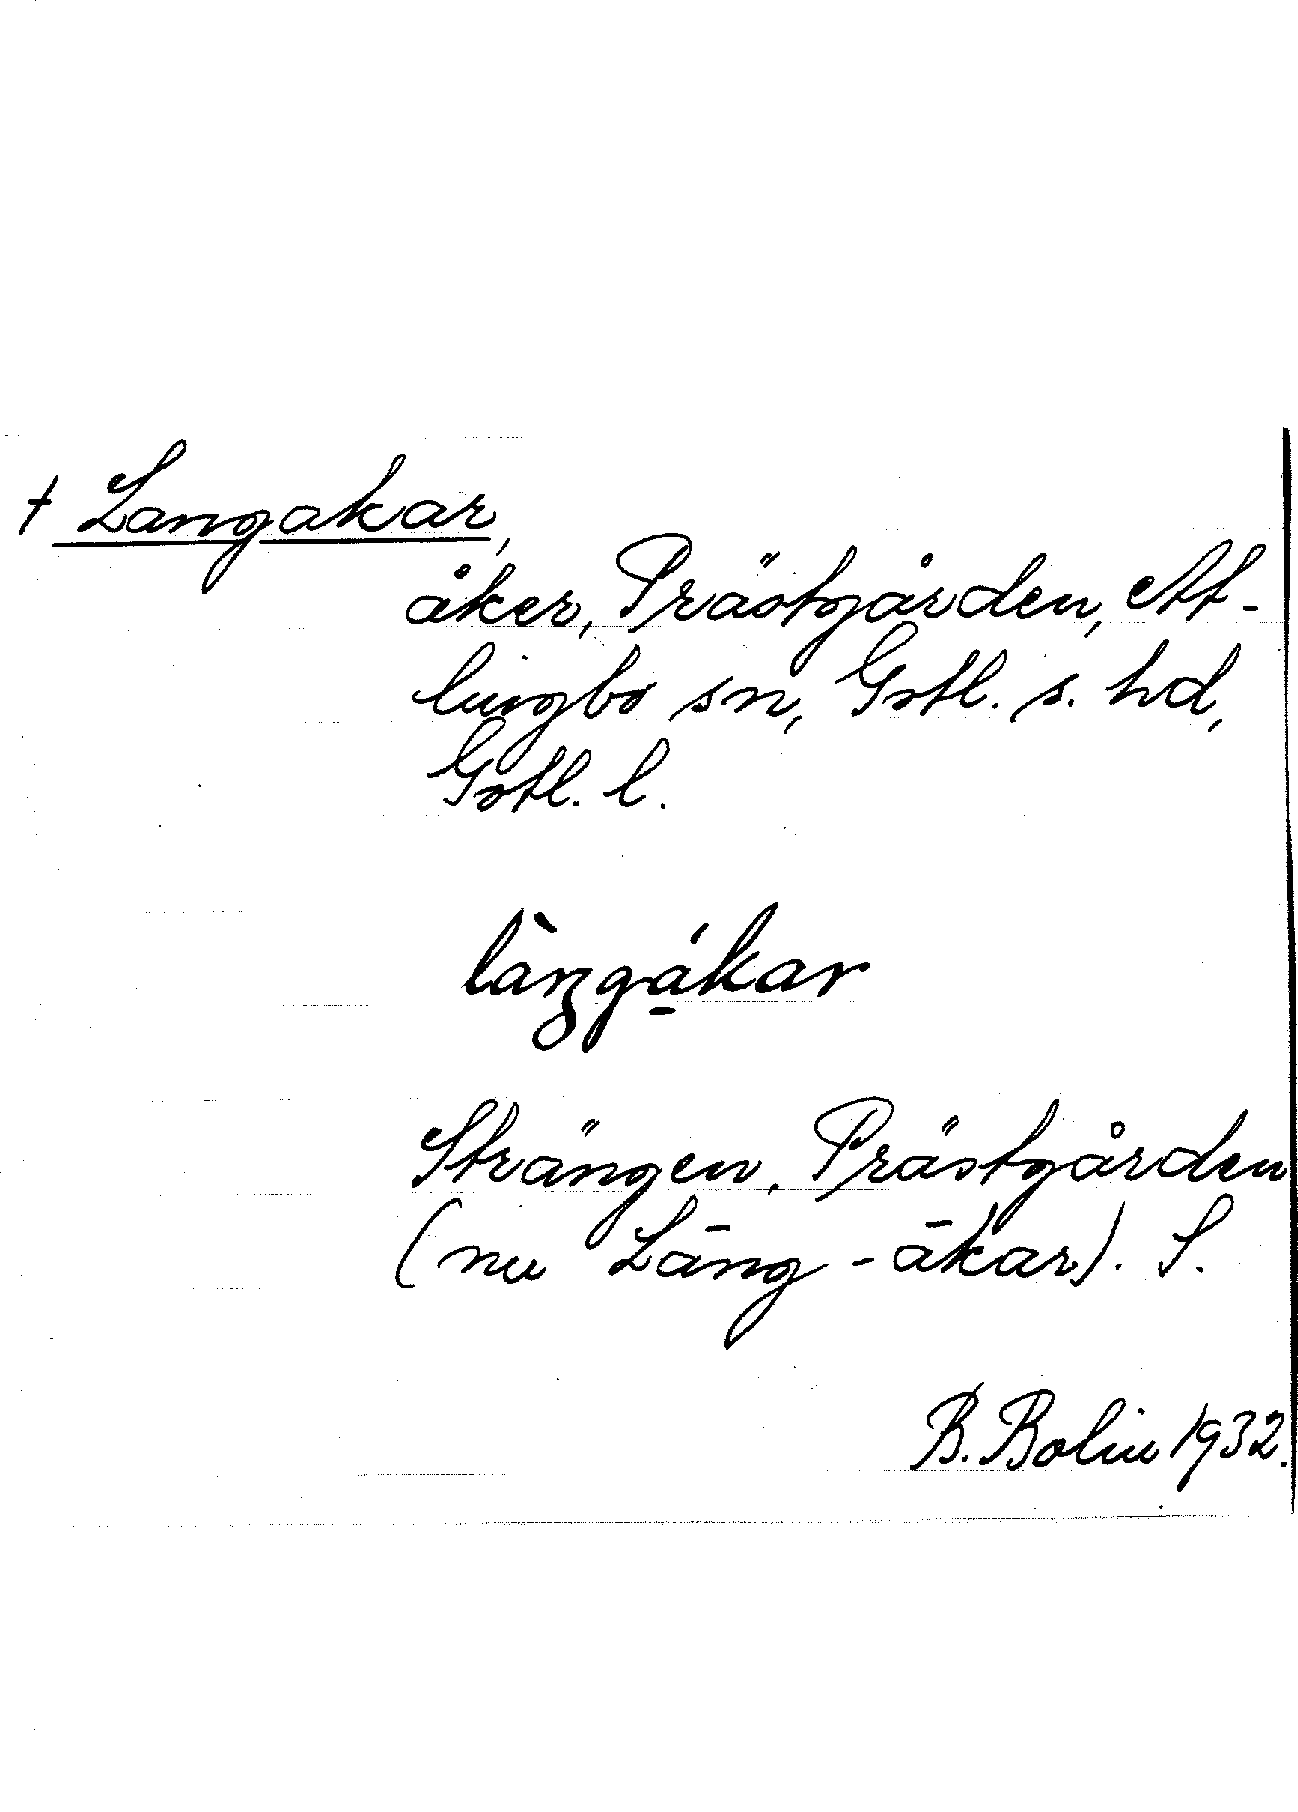 † Langakar,
åker, Prästgården, At-
lingbo sn, Gotl. s. hd,
Gotl. l.
làŋgákar
Strängen, Prästgården
(nu Lāng-ākar). S.
B. Bolin 1932.